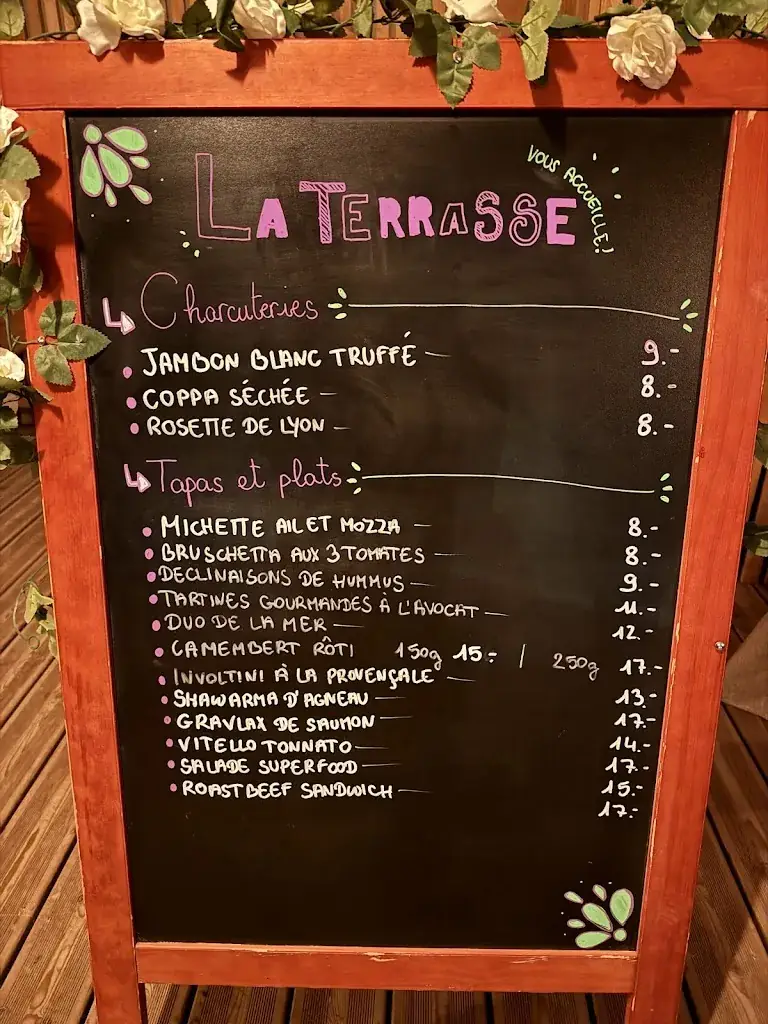 VOUS ACCUEILLE!
LA TERRASSE
Charcuteries
JAMBON BLANC TRUFFÉ — 9.-
COPPA SÉCHÉE — 8.-
ROSETTE DE LYON — 8.-
Tapas et plats
MICHETTE AIL ET MOZZA — 8.-
BRUSCHETTA AUX 3 TOMATES — 8.-
DECLINAISONS DE HUMMUS — 9.-
TARTINES GOURMANDES À L'AVOCAT — 11.-
DUO DE LA MER — 12.-
CAMEMBERT RÔTI 150g 15.- | 250g 17.-
INVOLTINI À LA PROVENÇALE — 13.-
SHAWARMA D'AGNEAU — 17.-
GRAVLAX DE SAUMON — 14.-
VITELLO TONNATO — 17.-
SALADE SUPERFOOD — 15.-
ROASTBEEF SANDWICH — 17.-